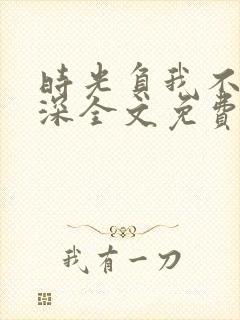 時光負我不
深全文免費
我有一刀